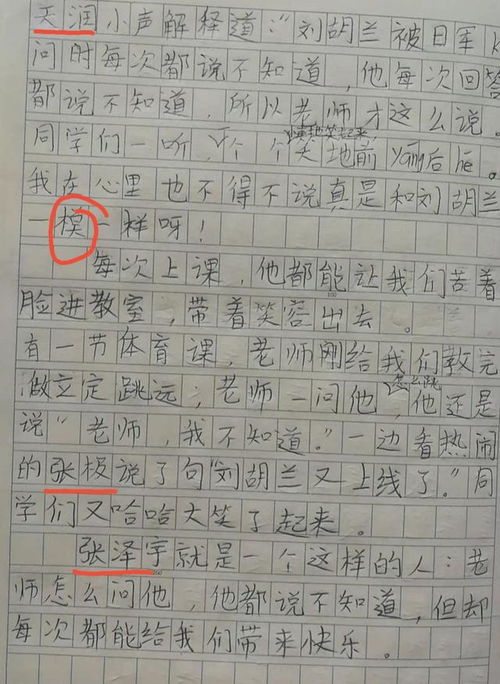 天润小声解释道:“刘胡兰被日军
问时每次都说不知道,他每次回答
都说不知道,所以老师才这么说。
同学们一听,个个笑地前yǎng后hé。
我在心里也不得不说真是和刘胡兰
一模一样呀!
每次上课,他都能让我们苦着
脸进教室,带着笑容出去。
有一节体育课,老师刚给我们教完
做立定跳远;老师一问他怎么跳,他还是
说“老师,我不知道。”一边看热闹
的张极说了句“刘胡兰又上线了。”同
学们又哈哈大笑了起来。
张泽宇就是一个这样的人:老
师怎么问他,他都说不知道,但却
每次都能给我们带来快乐。